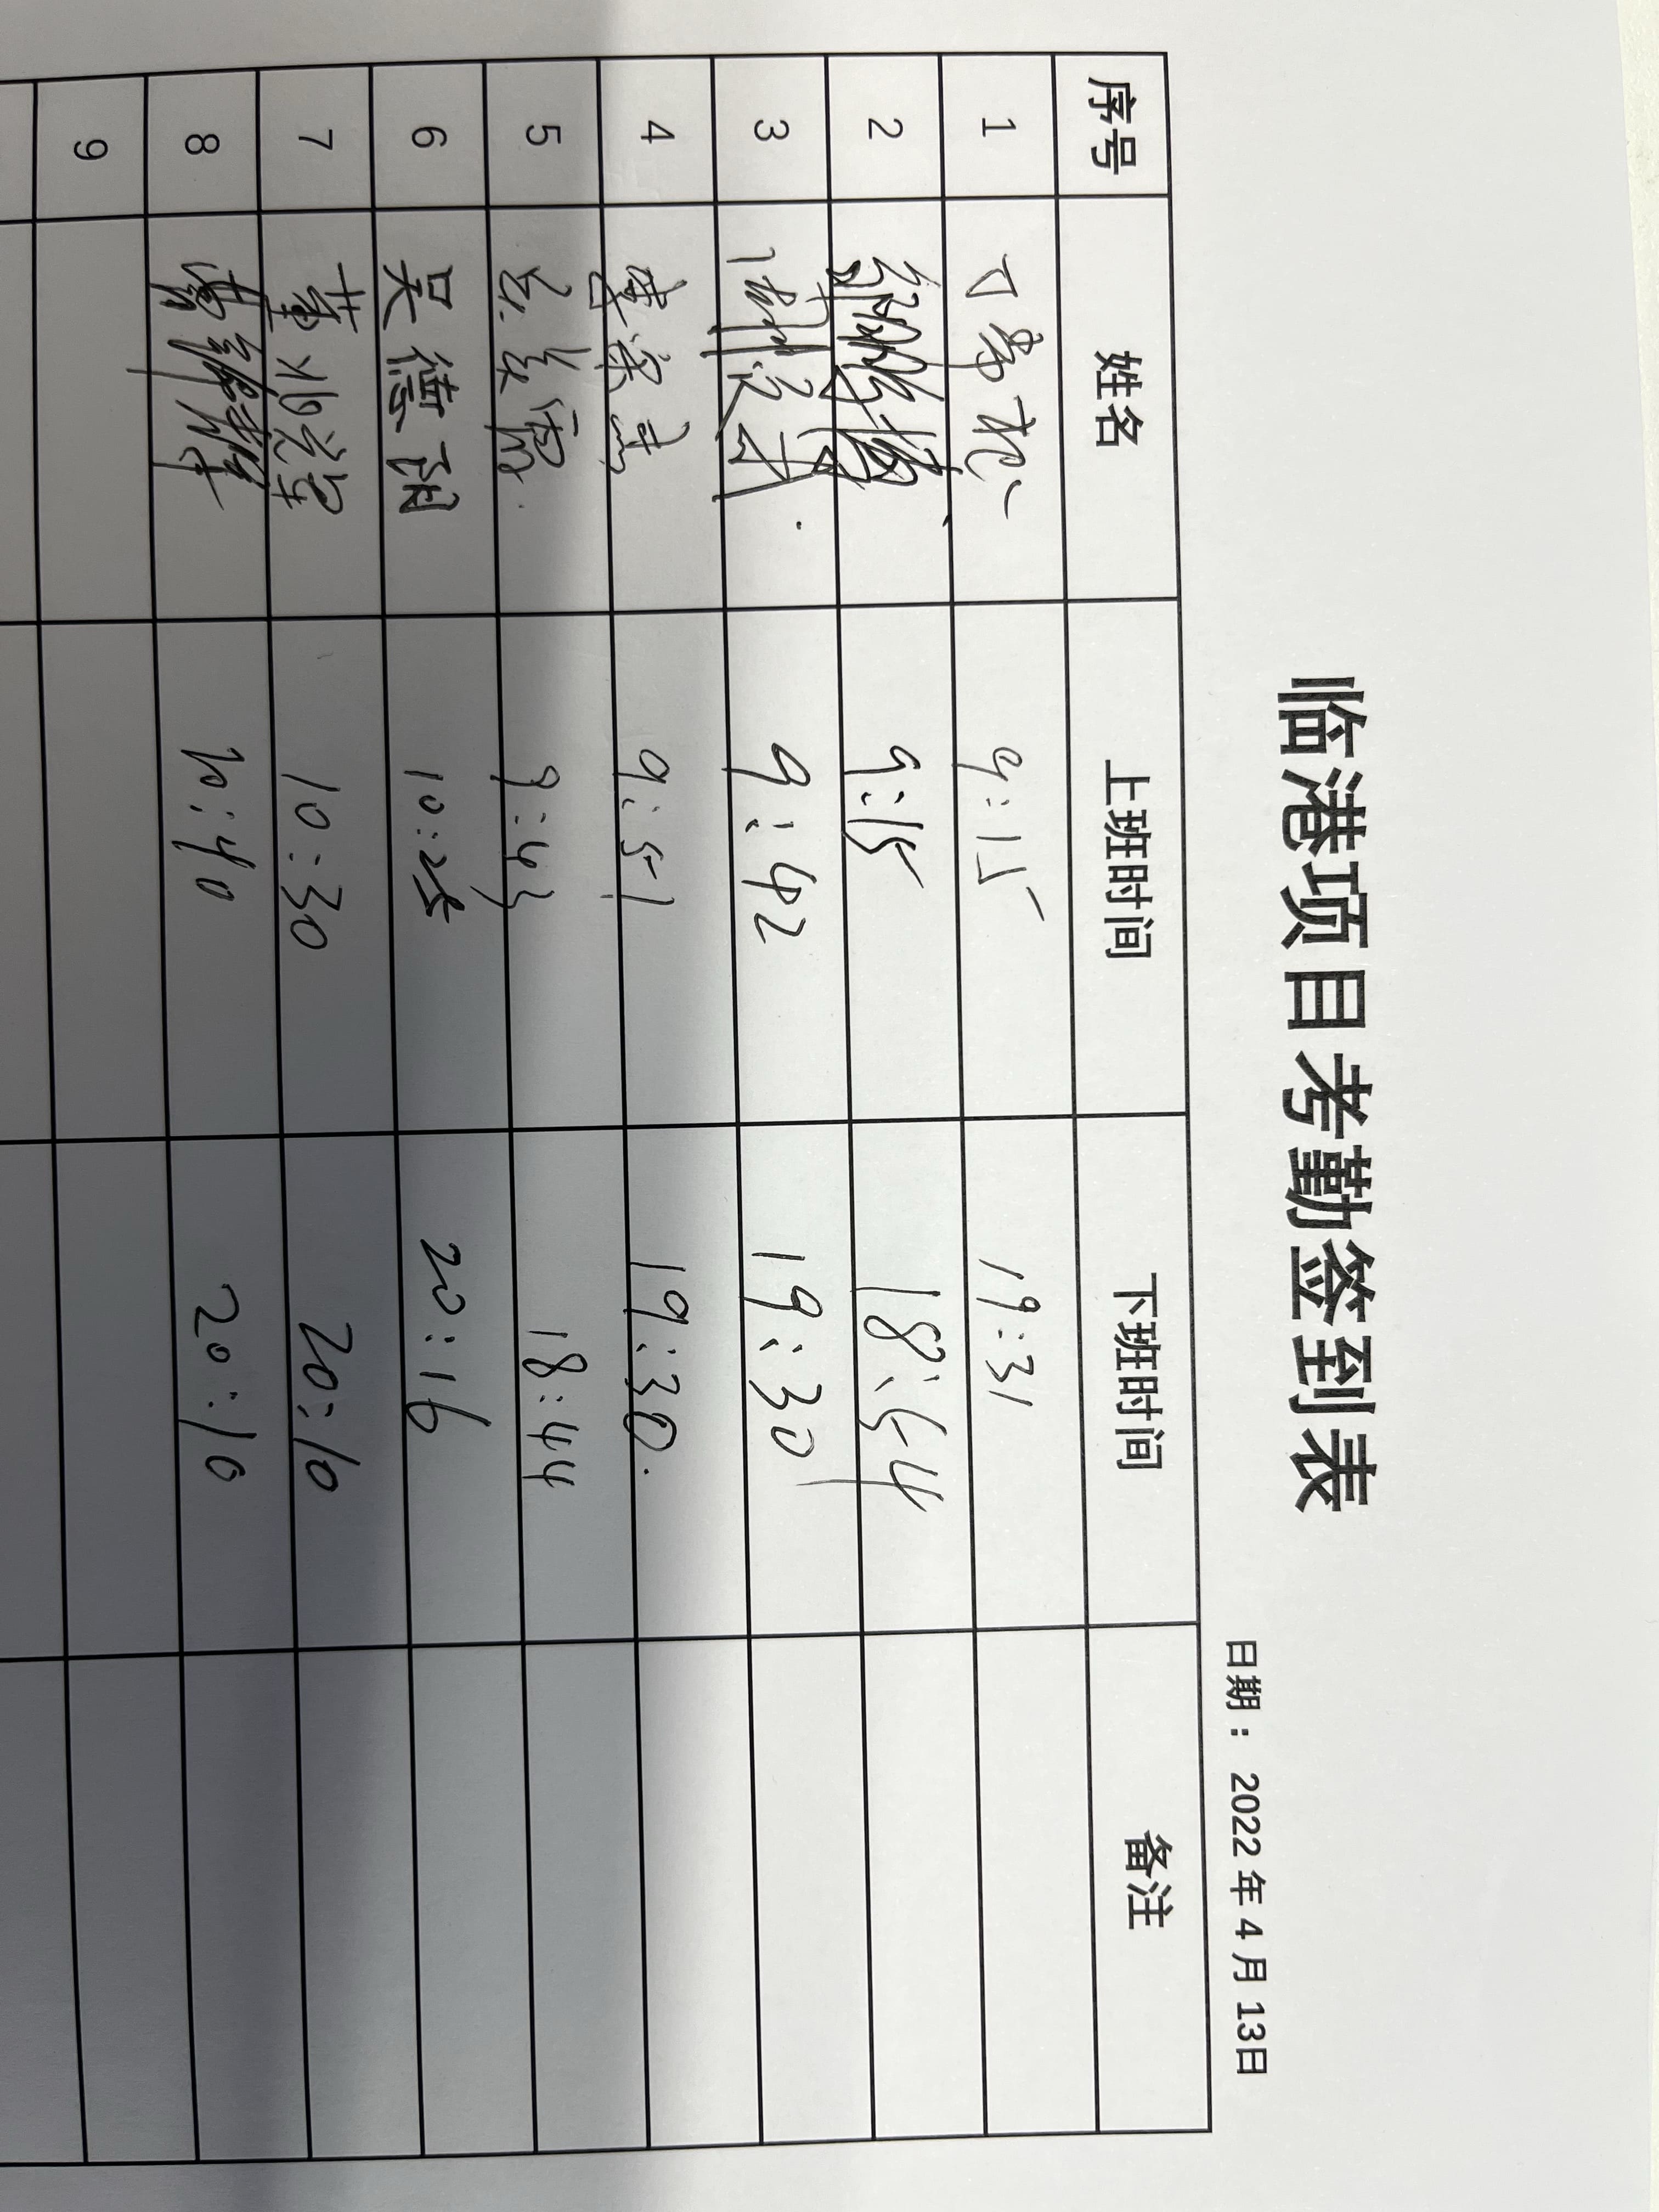 临港项目考勤签到表
日期： 2022 年 4 月 13日
序号 姓名 上班时间 下班时间 备注
1 丁常 9:15 19:31
2 鹏博 9:15 18:54
3 9:42 19:30
4 李宗杰 9:51 19:30.
5 9:43 18:44
6 吴德阴 10:25 20:16
7 董兆辉 10:30 20:10
8 曹锦辉 10:40 20:10
9